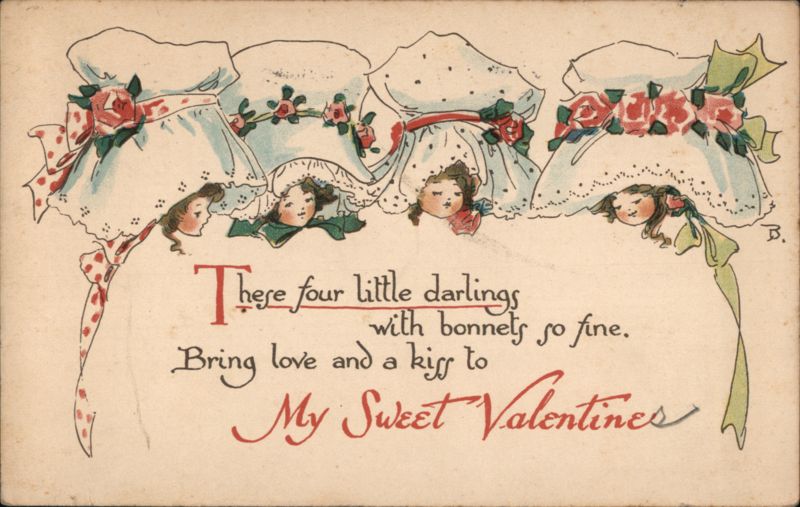 These four little darlings
with bonnets so fine.
Bring love and a kiss to
My Sweet Valentines
B.